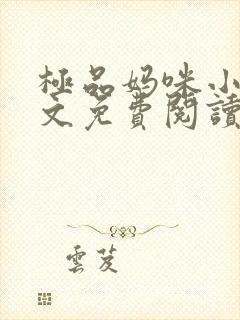 極品妈咪小
文免費閱讀
雲芨